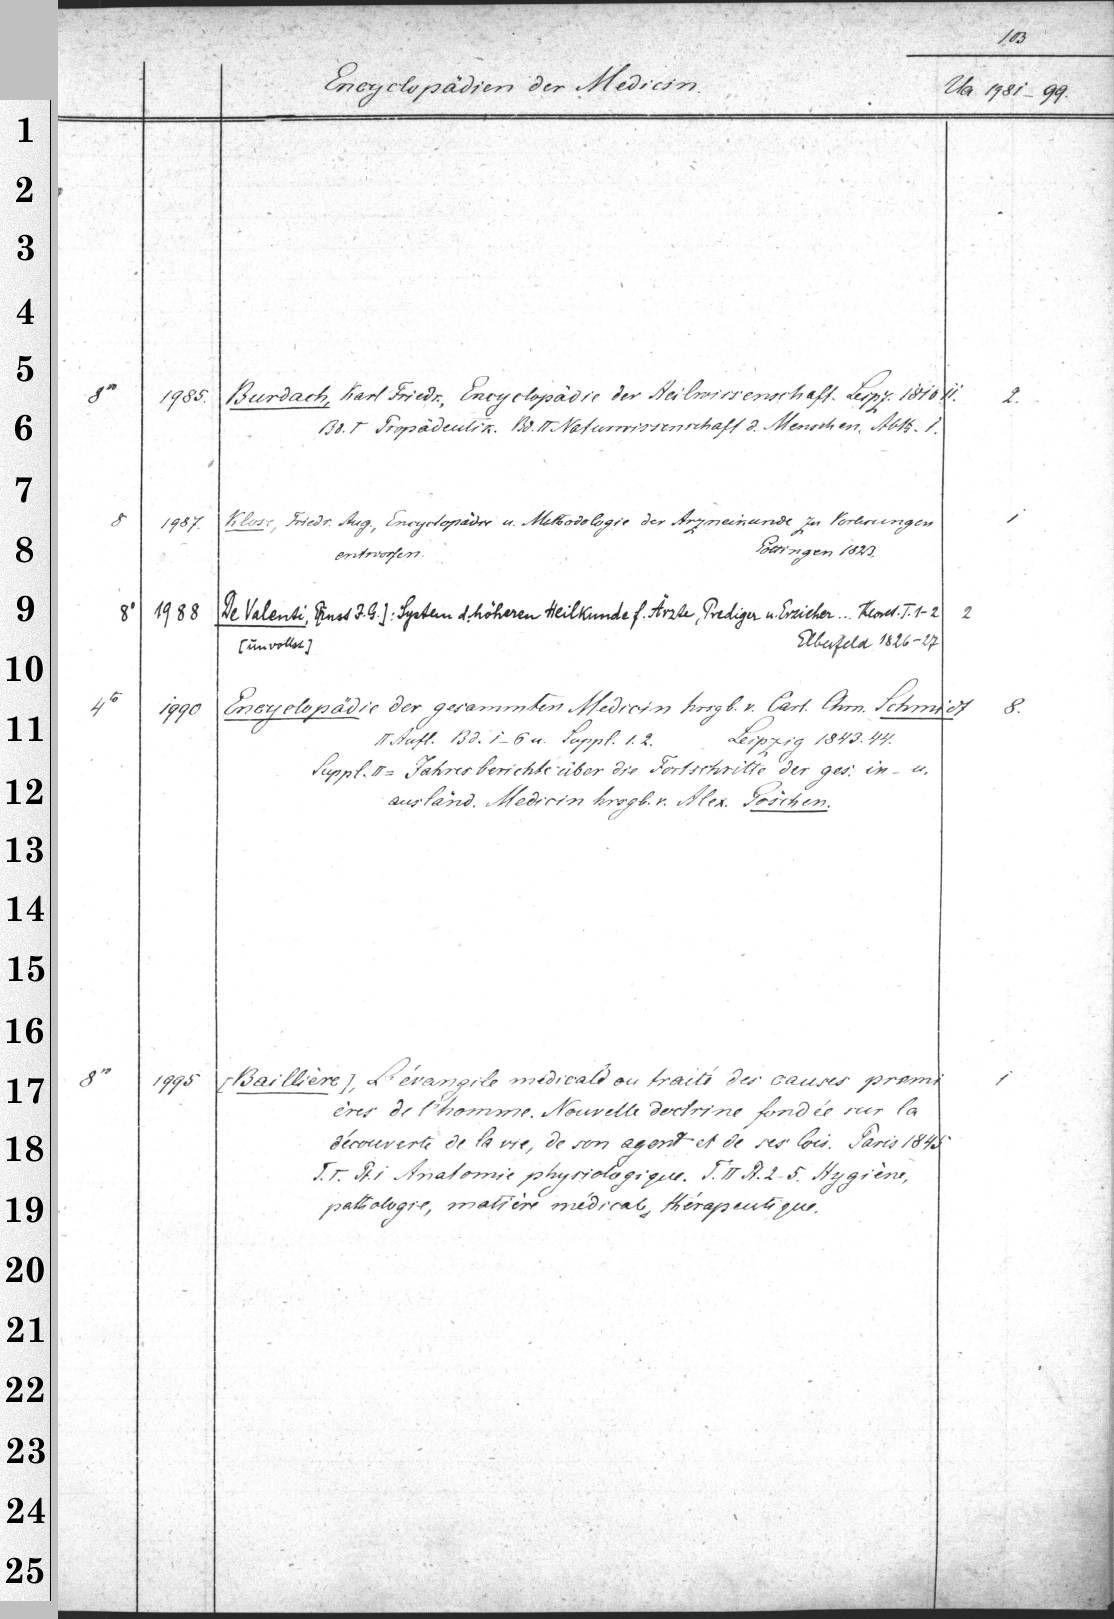 103
Encyclopädien der Medicin. Ua 1981-99.
1
2
3
4
5
8vo 1985. Burdach, Karl Friedr., Encyclopädie der Heilwissenschaft. Leipz. 1810 11. 2.
6
Bd. I Propädeutik. Bd. II Naturwissenschaft d. Menschen. Abth. 1.
7
8 1987. Klose, Friedr. Aug., Encyclopädie u. Methodologie der Arzneikunde zu Vorlesungen 1
8
entworfen. Göttingen 1823.
9
8° 1988 De Valenti, [Ernst J. G.]: System d. höheren Heilkunde f. Ärzte, Prediger u. Erzieher... T. 1-2 2
[unvollst] Elberfeld 1826-27
10
4to 1990 Encyclopädie der gesammten Medicin hrsgb. v. Carl Chrn. Schmidt 8.
11
II Aufl. Bd. 1-6 u. Suppl. 1. 2. Leipzig 1843. 44.
Suppl. II = Jahresberichte über die Fortschritte der ges. in- u.
12
ausländ. Medicin hrsgb. v. Alex. Göschen.
13
14
15
16
8vo 1995 [Baillière], L'évangile médicale ou traité des causes premi 1
17
ères de l'homme. Nouvelle doctrine fondée sur la
18
découverte de la vie, de son agent et de ses lois. Paris 1845
T. I. Pt. 1 Anatomie physiologique. T. II Pt. 2-5. Hygiène,
19
pathologie, matière médicale, thérapeutique.
20
21
22
23
24
25